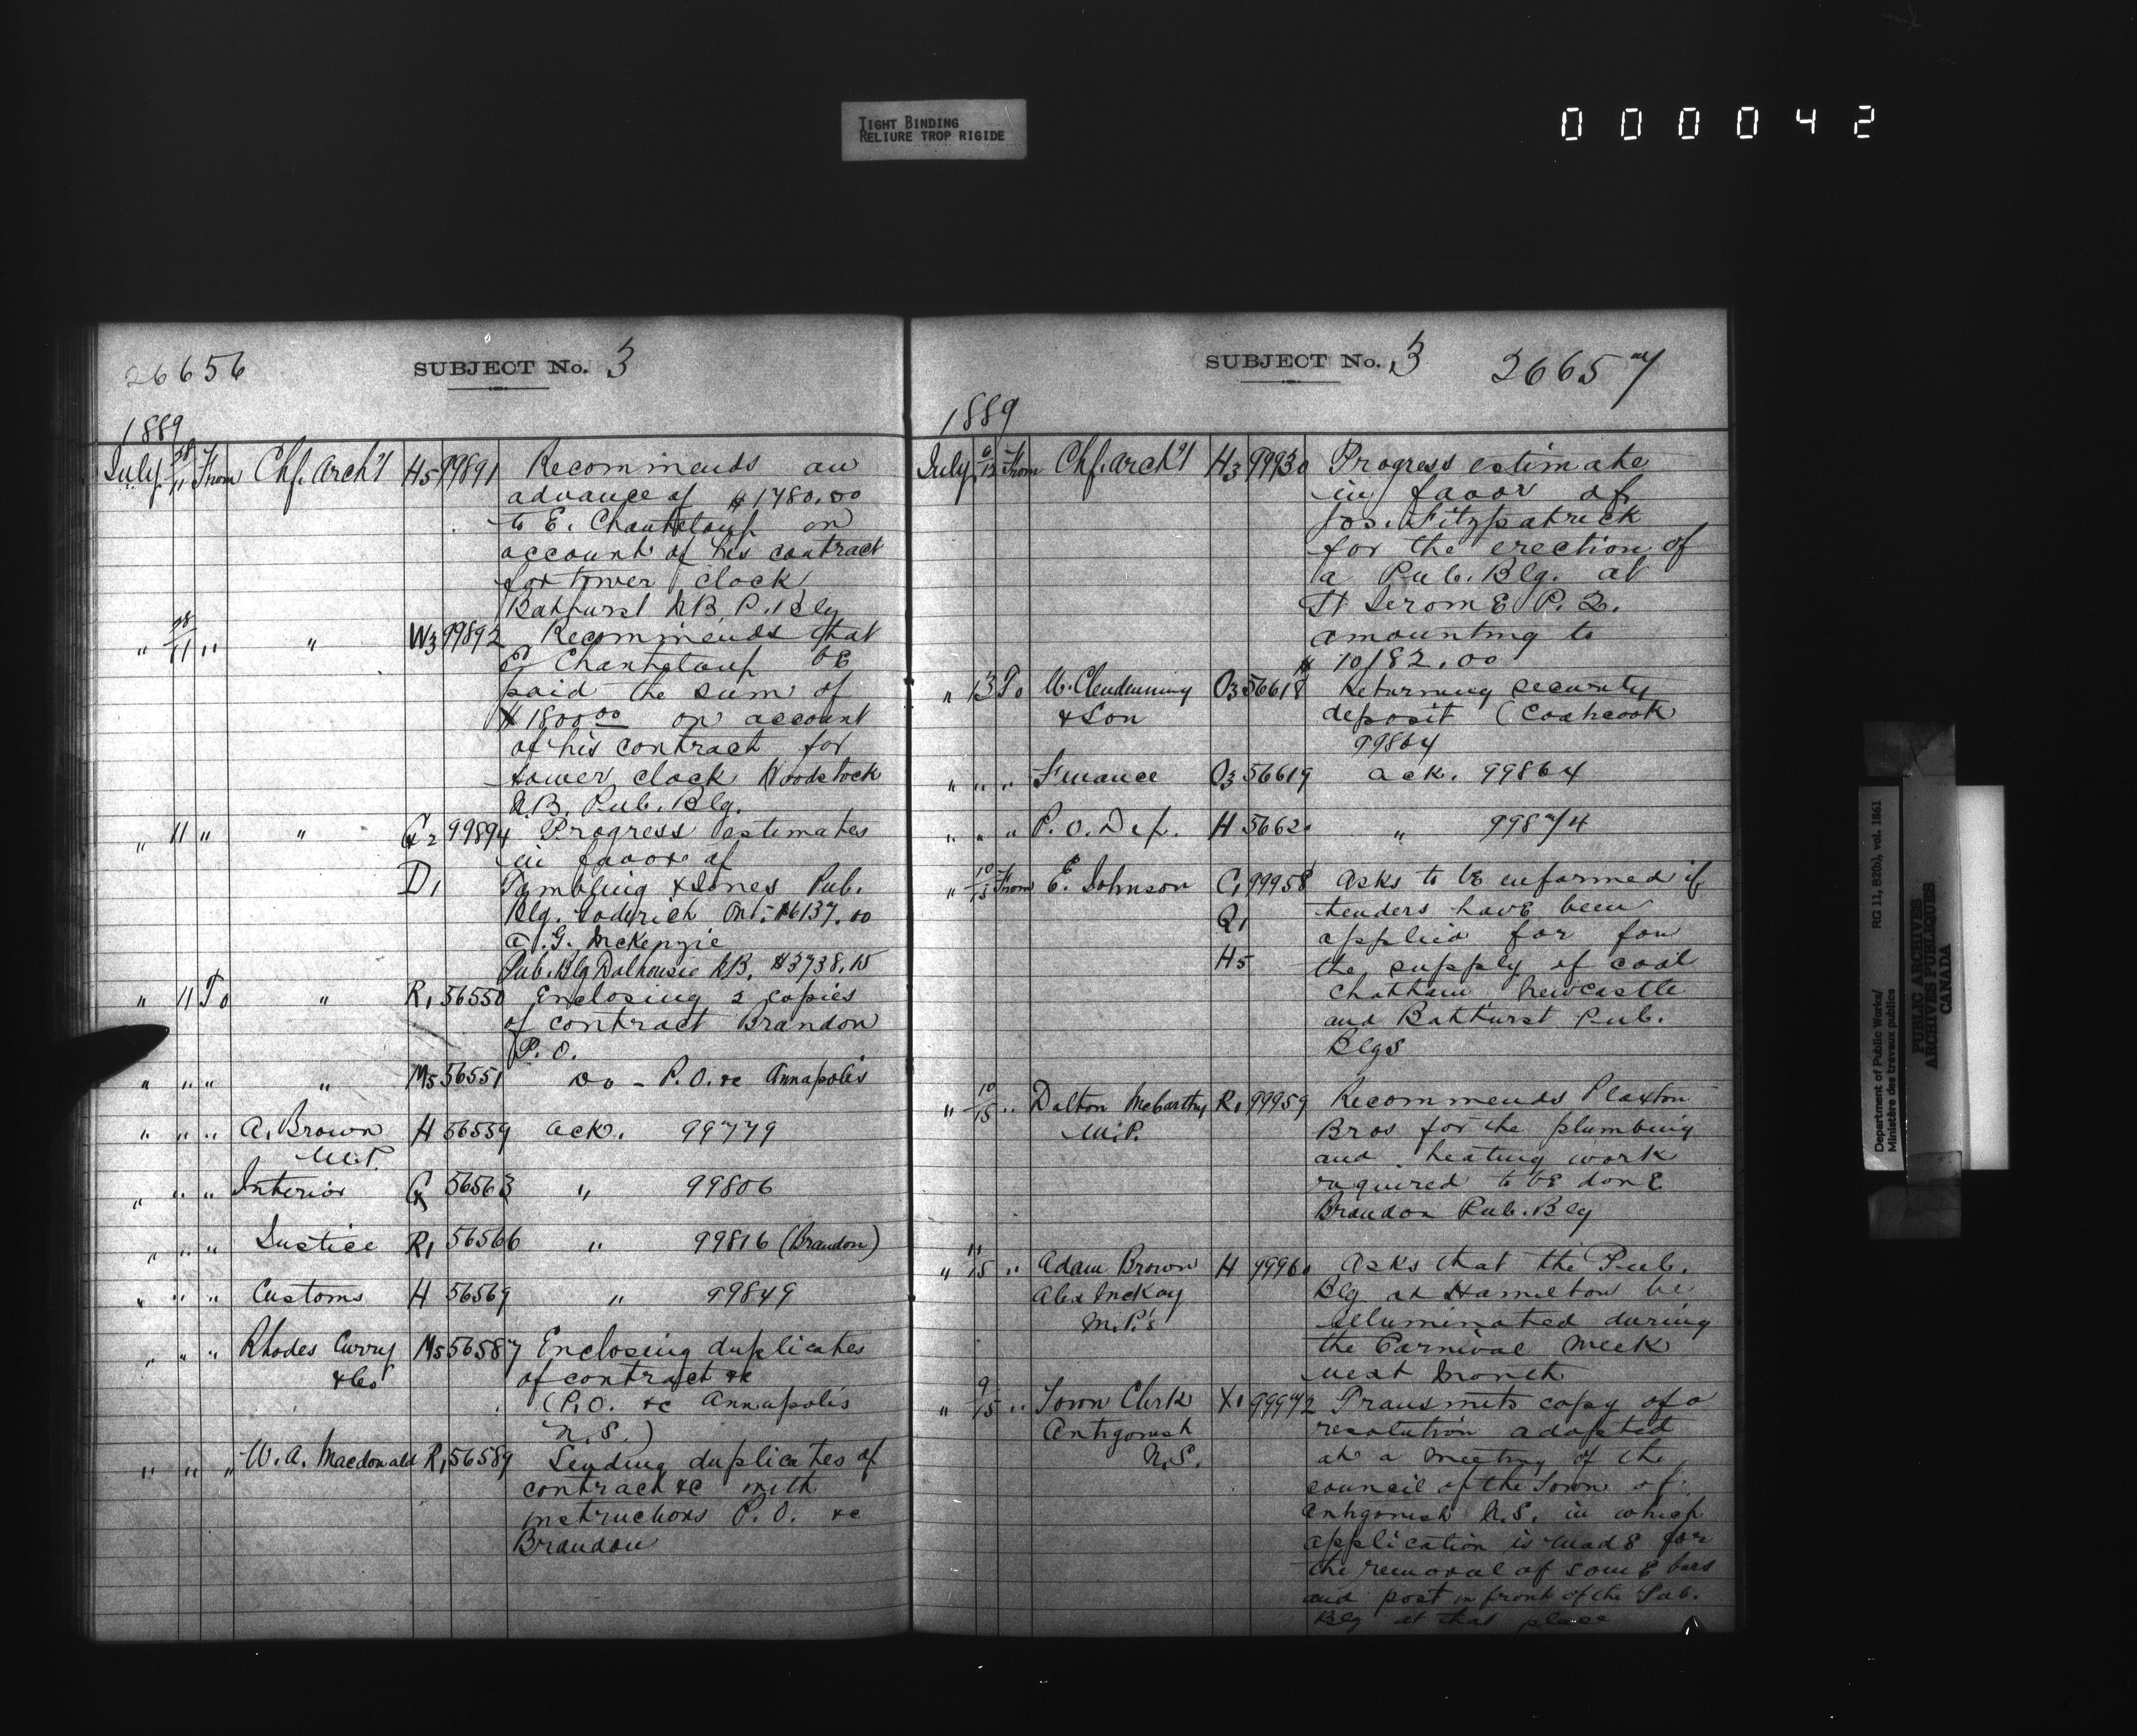 TIGHT BINDING
RELIURE TROP RIGIDE
000042
26656 SUBJECT No. 3
1889
July 28/11 From Chf. Arch't H5 99891 Recommends an
advance of $1780.00
to E. Chanteloup on
account of his contract
for tower clock
Bathurst N.B. P. Blg
" 28/11 " " W3 99892 Recommends that
E. Chanteloup be
paid the sum of
$1800.00 on account
of his contract for
tower clock Woodstock
N.B. Pub. Blg.
" 11 " " G2 99894 Progress estimates
in favor of
D1 Tambling & Jones Pub.
Blg. Goderich Ont. $6137.00
a. G. McKenzie
Pub. Blg Dalhousie N.B. $3738.15
" 11 To " R1 56550 Enclosing 2 copies
of contract Brandon
P.O.
" " " " M5 56551 Do - P.O. &c Annapolis
" " " A. Brown H 56559 ack. 99779
M.P.
" " " Interior G 56563 " 99806
" " " Justice R1 56566 " 99816 (Brandon)
" " " Customs H 56569 " 99849
" " " Rhodes Curry M5 56587 Enclosing duplicates
& Co of contract &c
(P.O. &c Annapolis
N.S.)
" " " W. A. Macdonald R1 56589 Sending duplicates of
contract &c with
instructions P.O. &c
Brandon
SUBJECT No. 3 26657
1889
July 6/12 From Chf. Arch't H3 99930 Progress estimate
in favor of
Jos. Fitzpatrick
for the erection of
a Pub. Blg. at
St Jerome P.Q.
amounting to
$ 10782.00
" 13 To W. Clendenning O3 56618 Returning security
& Son deposit (Coaticook
99864
" " " Finance O3 56619 ack. 99864
" " " P.O. Dep. H 56620 " 99874
" 10/15 From E. Johnson C1 99958 Asks to be informed if
tenders have been
Q1 applied for for
H5 the supply of coal
Chatham Newcastle
and Bathurst Pub.
Blgs
" 10/15 " Dalton McCarthy R1 99959 Recommends Plaxton
M.P. Bros for the plumbing
and heating work
required to be done
Brandon Pub. Blg
" 11/15 " Adam Brown H 99960 Asks that the Pub.
Alex McKay Blg at Hamilton be
M.P.'s illuminated during
the Carnival week
next month
" 9/15 " Town Clerk X1 99972 Transmits copy of a
Antigonish resolution adopted
N.S. at a meeting of the
council of the Town of
Antigonish N.S. in which
application is made for
the removal of some bars
and post in front of the Pub.
Blg at that place
Department of Public Works/ RG 11, B2(b), vol. 1861
Ministère des travaux publics
PUBLIC ARCHIVES
ARCHIVES PUBLIQUES
CANADA